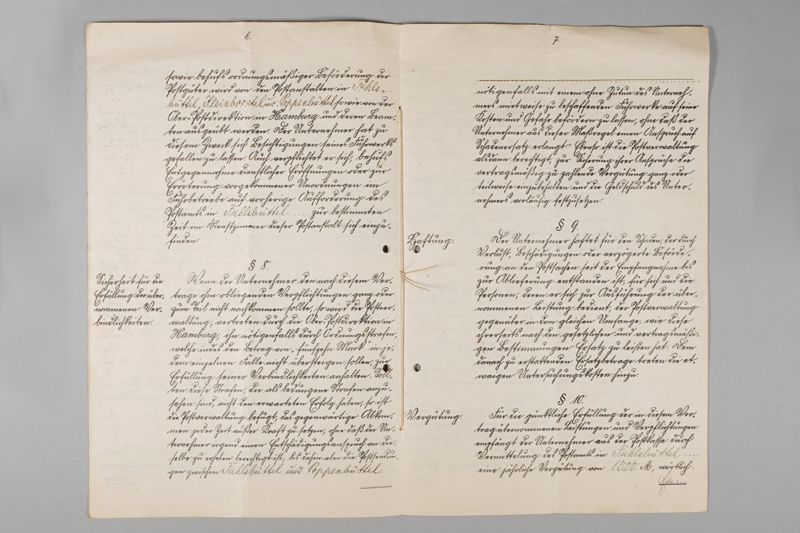 6.
sowie behufs ordnungsmäßiger Beförderung der
Postgüter wird von den Postanstalten in Fuhls-
büttel, Kleinborstel u. Poppenbüttel sowie von der
Ober-Postdirektion in Hamburg und deren Beam-
ten ausgeübt werden. Der Unternehmer hat zu
diesem Zweck sich Besichtigungen seines Fuhrwerks
gefallen zu lassen. Auch verpflichtet er sich, behufs
Entgegennahme dienstlicher Eröffnungen oder zur
Erörterung vorgekommener Unordnungen im
Fuhrbetriebe auf vorherige Aufforderung des
Postamts in Fuhlsbüttel zur bestimmten
Zeit im Dienstzimmer dieser Postanstalt sich einzu-
finden.
§ 8.
Sicherheit für die
Erfüllung der über-
nommenen Ver-
bindlichkeiten.
Wenn der Unternehmer den nach diesem Ver-
trage ihm obliegenden Verpflichtungen ganz oder
zum Teil nicht nachkommen sollte, so wird die Postver-
waltung, vertreten durch die Ober-Postdirektion in
Hamburg, ihn nötigenfalls durch Ordnungsstrafen,
welche indes den Betrag von "fünfzehn Mark" in je-
dem einzelnen Falle nicht übersteigen sollen, zur
Erfüllung seiner Verbindlichkeiten anhalten. Soll-
ten diese Strafen, die als bedungene Strafen anzu-
sehen sind, nicht den erwarteten Erfolg haben, so ist
die Postverwaltung befugt, das gegenwärtige Abkom-
men jeder Zeit außer Kraft zu setzen, ohne daß der Un-
ternehmer irgend einen Entschädigungsanspruch an die-
selbe zu erheben berechtigt ist, bis dahin aber die Postsendun-
gen zwischen Fuhlsbüttel und Poppenbüttel
7.
nötigenfalls mit einem ohne Zutun des Unterneh-
mers mietweise zu beschaffenden Fuhrwerke auf seine
Kosten und Gefahr befördern zu lassen, ohne daß der
Unternehmer aus dieser Maßregel einen Anspruch auf
Schadenersatz erlangt. Ebenso ist die Postverwaltung
alsdann berechtigt, zur Sicherung ihrer Ansprüche die
vertragsmäßig zu zahlende Vergütung ganz oder
teilweise einzubehalten und die Geldschuld des Unter-
nehmers vorläufig festzusetzen.
§ 9.
Haftung.
Der Unternehmer haftet für den Schaden, der durch
Verlust, Beschädigungen oder verzögerte Beförde-
rung an den Postsachen seit der Empfangnahme bis
zur Ablieferung entstanden ist, für sich und die
Personen, deren er sich zur Ausführung der über-
nommenen Leistung bedient, der Postverwaltung
gegenüber in dem gleichen Umfange, wie diese
ihrerseits nach den gesetzlichen und vertragsmäßi-
gen Bestimmungen Ersatz zu leisten hat. Dem
danach zu erstattenden Ersatzbetrage treten die et-
waigen Untersuchungskosten hinzu.
§ 10.
Vergütung.
Für die pünktliche Erfüllung der in diesem Ver-
trag übernommenen Leistungen und Verpflichtungen
empfängt der Unternehmer aus der Postkasse durch
Vermittelung des Postamts in Fuhlsbüttel
eine jährliche Vergütung von 1300 M, wörtlich: